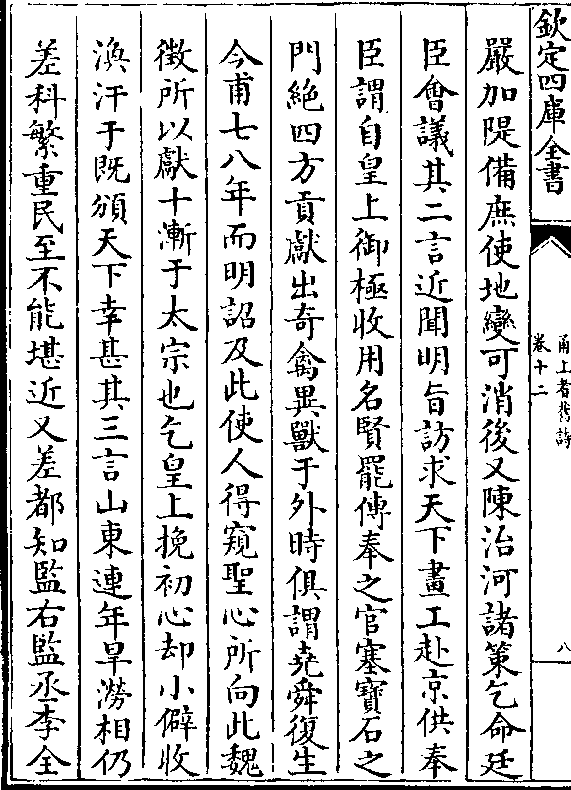 欽定四庫全書
甬上耆舊詩
卷十二
八
嚴加隄備庶使地變可消後又陳治河諸策乞命廷
臣會議其二言近聞明旨訪求天下畫工赴京供奉
臣謂自皇上御極收用名賢罷傳奉之官塞寳石之
門絶四方貢獻出奇禽異獸于外時俱謂堯舜復生
今甫七八年而明詔及此使人得窺聖心所向此魏
徵所以獻十漸于太宗也乞皇上挽初心却小僻收
渙汗于既頒天下幸甚其三言山東連年旱澇相仍
差科繁重民至不能堪近又差都知監右監丞李全